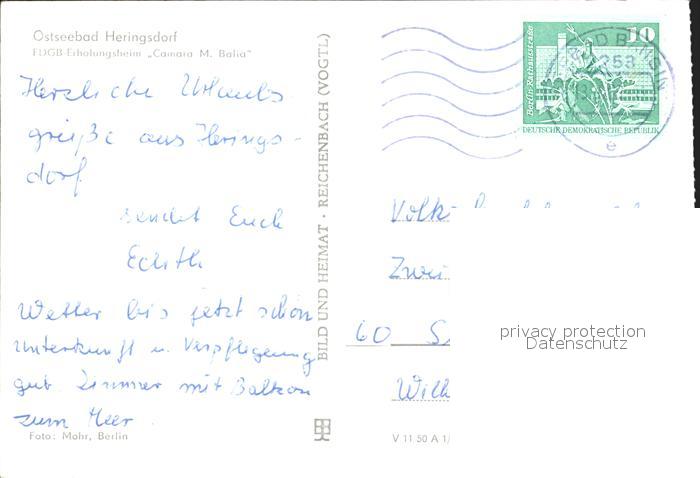 Ostseebad Heringsdorf
FDGB-Erholungsheim „Camara M. Balia"
Herzliche Urlaubs
grüße aus Herings-
dorf
sendet Euch
Edith
Wetter bis jetzt schön
Unterkunft u. Verpflegung
gut. Zimmer mit Balkon
zum Meer.
Foto: Mohr, Berlin
BILD UND HEIMAT · REICHENBACH (VOGTL)
V 11 50 A 1/
10
Berlin, Rathausstraße
DEUTSCHE DEMOKRATISCHE REPUBLIK
e
Volk-
Zwei
60 S
Wilh
privacy protection
Datenschutz